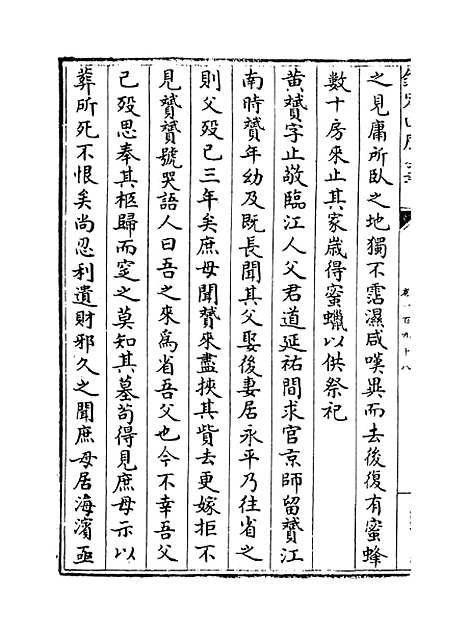 之見庸所臥之地獨不霑濕咸嘆異而去後復有蜜蜂
數十房來止其家歲得蜜蠟以供祭祀
黄贇字止敬臨江人父君道延祐間求官京師留贇江
南時贇年幼及既長聞其父娶後妻居永平乃往省之
則父歿已三年矣庶母聞贇來盡挾其貲去更嫁拒不
見贇贇號哭語人曰吾之來為省吾父也今不幸吾父
已歿思奉其柩歸而窆之莫知其墓苟得見庶母示以
葬所死不恨矣尚忍利遺財邪久之聞庶母居海濱亟
卷一百九十八